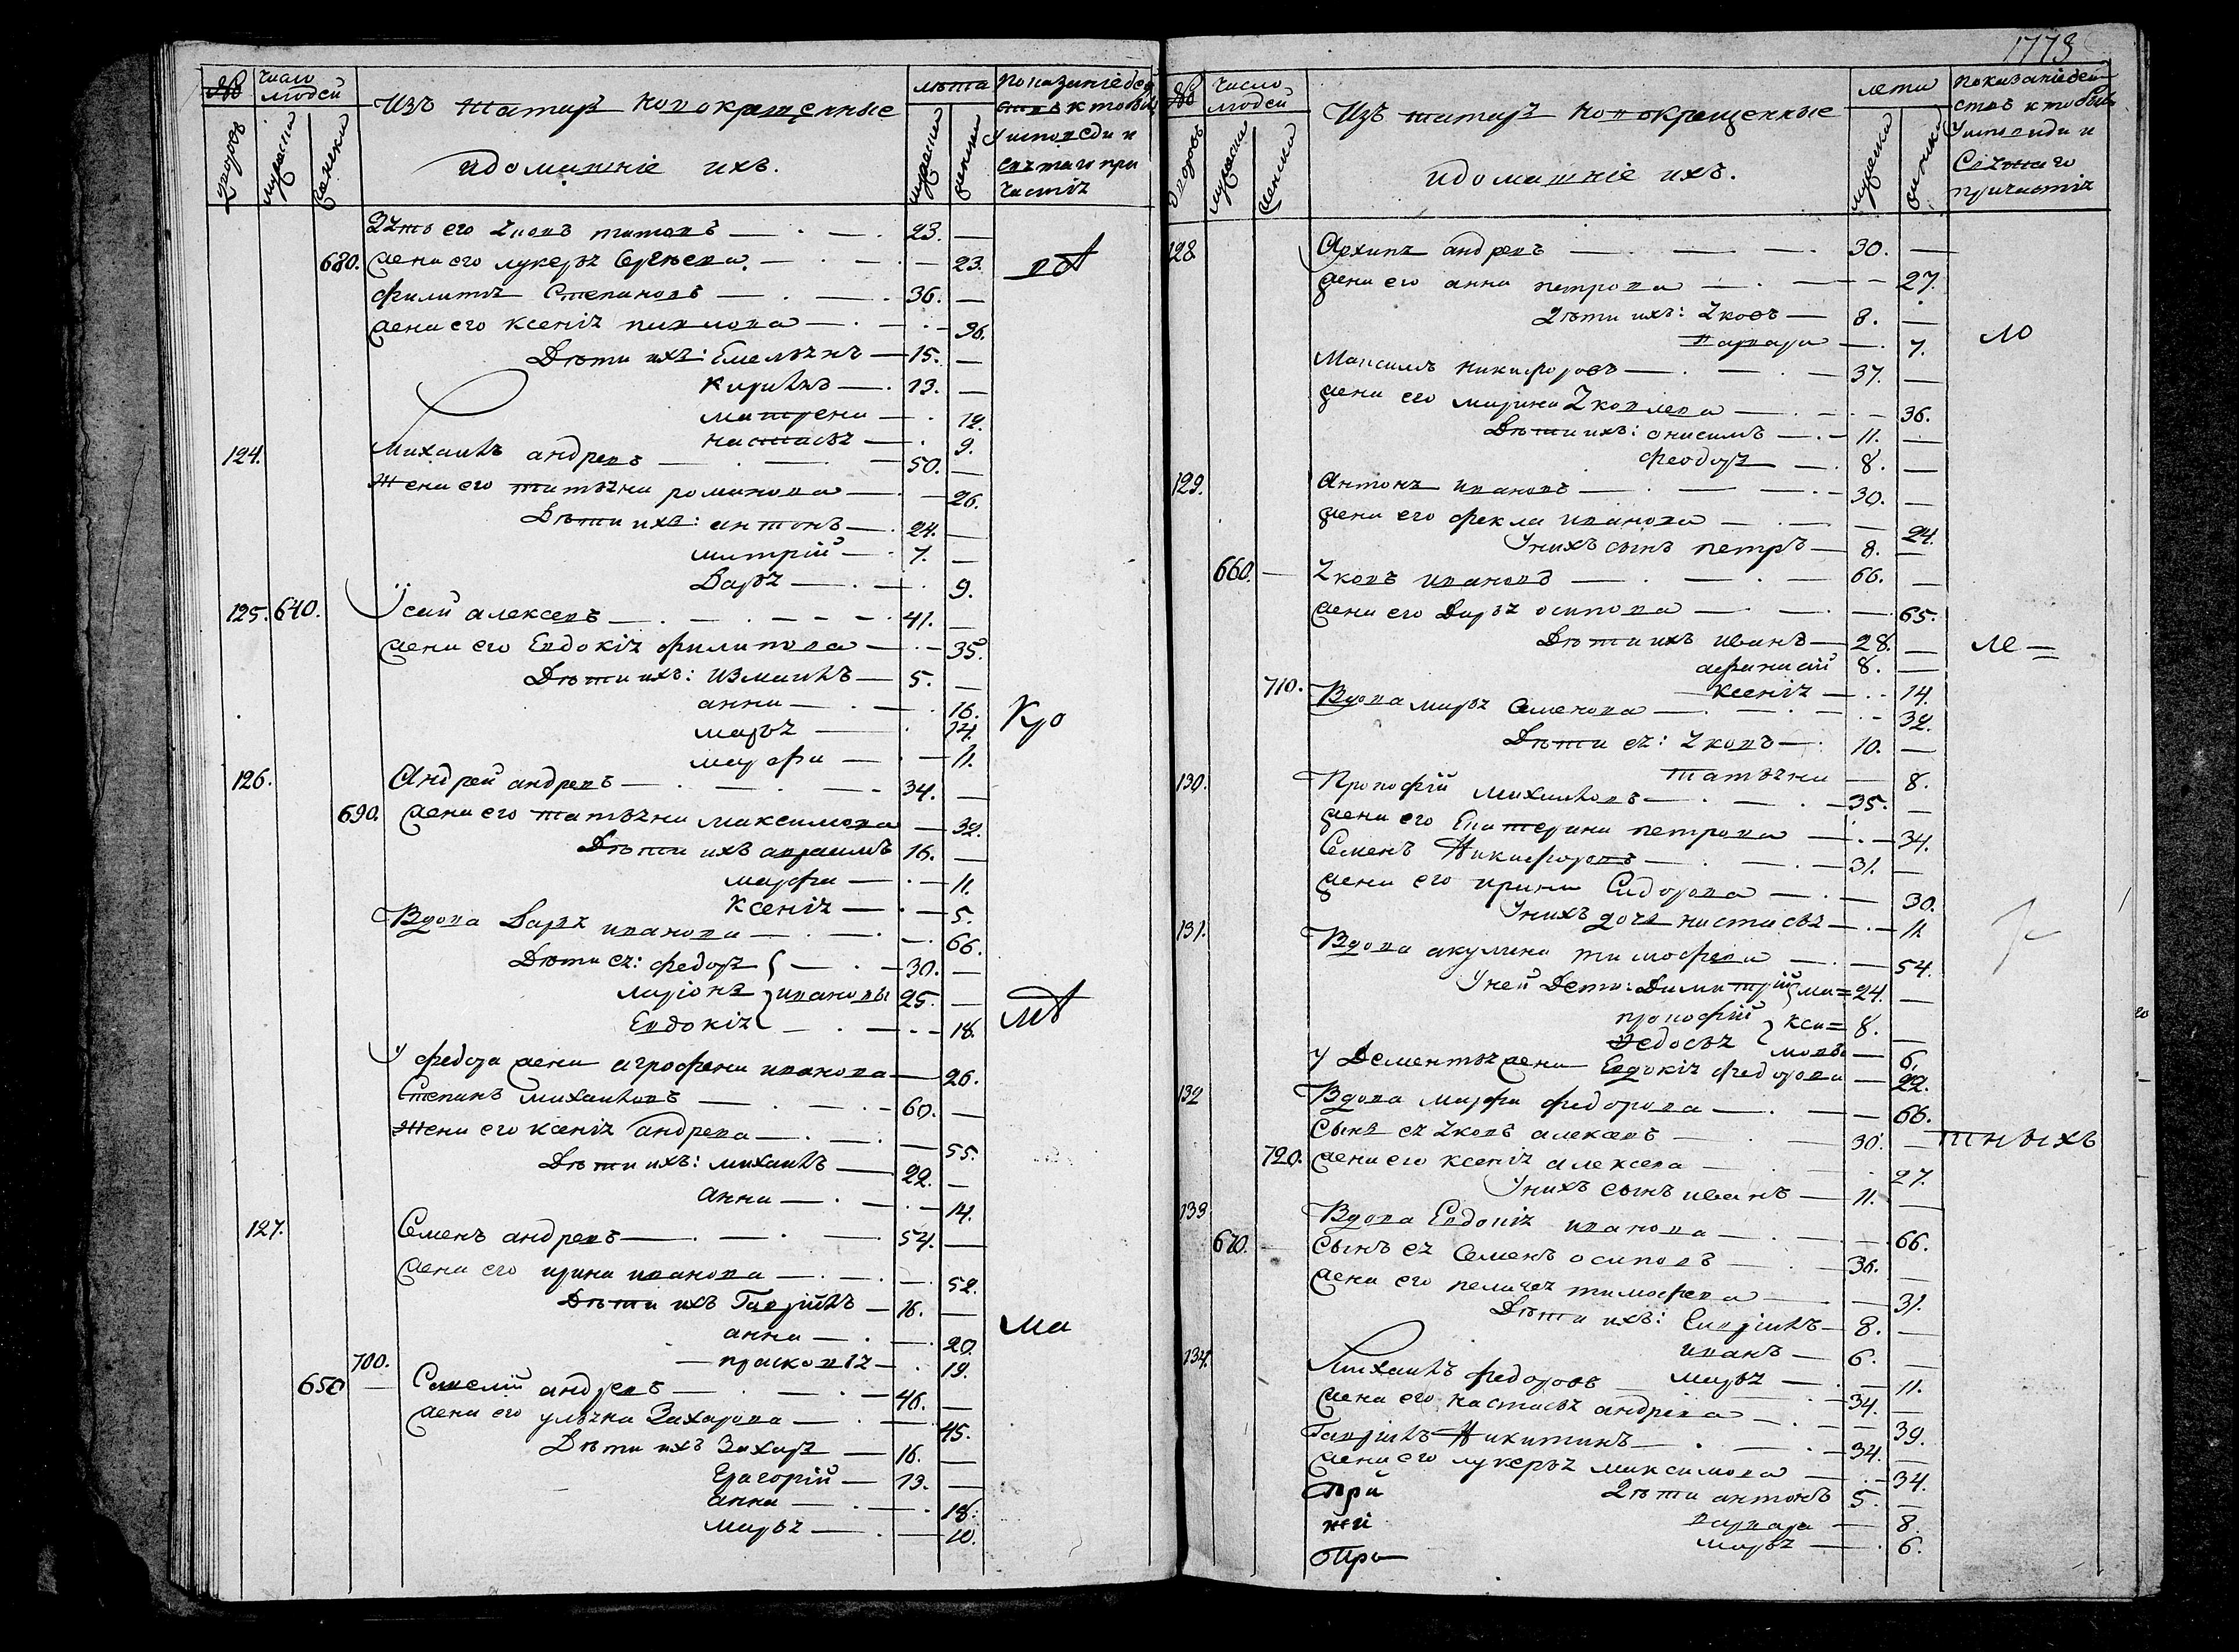 № Число людей Изъ татаръ новокрещенные лѣта Показаніе дей
ствъ кто былъ
дворовъ мужеска женска и домашніе ихъ. мужеска женска у исповеди и
святаго при
частія
Зять его Яковъ титовъ 23.
680. жена его лукерья Сергѣева 23.
филипъ Степановъ 36.
жена его ксенія павлова 36.
Дѣти ихъ: Емельянъ 15.
Кирилъ 13.
матрена 12.
настасья 9.
124. Михаилъ андреевъ 50.
жена его татьяна романова 26.
Дѣти ихъ: антонъ 24.
митрій 7.
Дарья 9.
125. 640. Исай алексеевъ 41.
жена его Евдокія филипова 35.
Дѣти ихъ: измаилъ 5.
анна 16.
марья 14.
марфа 11.
Кро
126. Андрей андреевъ 34.
690. жена его татьяна максимова 32.
Дѣти ихъ авраамъ 16.
марфа 11.
Ксенія 5.
Вдова Дарья иванова 66.
Дѣти ея: федоръ 30.
ларіонъ ивановы 25.
Евдокія 18.
У федора жена агрофена иванова 26.
Степанъ михаиловъ 60.
Жена его ксенія андреева 55.
Дѣти ихъ: михаилъ 22.
анна 14.
127. Семенъ андреевъ 54.
жена его ирина иванова 52.
Дѣти ихъ Гаврилъ 16.
анна 20.
700. прасковія 19.
ма
650 Савелій андреевъ 46.
жена его ульяна Захарова 45.
Дѣти ихъ Захаръ 16.
Григорій 13.
анна 18.
марья 10.
1778
№ Число людей Изъ татаръ новокрещенные лета Показаніе дей
ствъ кто былъ
дворовъ мужеска женска и домашніе ихъ. мужеска женска у исповеди и
Святаго
причастія
128 Архипъ андреевъ 30.
жена его анна петрова 27.
Дѣти ихъ: Яковъ 8.
варвара 7.
ло
Максимъ никифоровъ 37.
жена его марина Яковлева 36.
Дѣти ихъ: онисимъ 11.
феодоръ 8.
129. Антонъ ивановъ 30.
жена его фекла иванова 24.
У нихъ сынъ петръ 8.
660. Яковъ ивановъ 66.
жена его Дарья осипова 65.
Дѣти ихъ иванъ 28.
афанасий 8.
ксенія 14.
ле
710. Вдова марья Семенова 32.
Дѣти ея: Яковъ 10.
татьяна 8.
130. Прокофій михаиловъ 35.
жена его Екатерина петрова 34.
Семенъ Никифоровъ 31.
жена его ирина Сидорова 30.
У нихъ дочь настасья 11.
131. Вдова акулина тимофеева 54.
У ней Дети: Димитрій ма= 24.
прокофій кси= 8.
Федосья мовы 6.
У Дементья жена Евдокія федорова 22.
132 Вдова марфа федорова 66.
Сынъ ея Яковъ алексеевъ 30.
тныхъ
720. жена его ксенія алексеева 27.
У нихъ сынъ иванъ 11.
133 Вдова Евдокія иванова 66.
670. Сынъ ея Семенъ осиповъ 36.
жена его пелагея тимофеева 31.
Дѣти ихъ: Гаврилъ 8.
иванъ 6.
марья 11.
134. Михаилъ федоровъ 34.
жена его настасья андреева 39.
Гаврилъ Никитинъ 34.
жена его лукерья максимова 34.
Дѣти антонъ 5.
варвара 8.
марья 6.